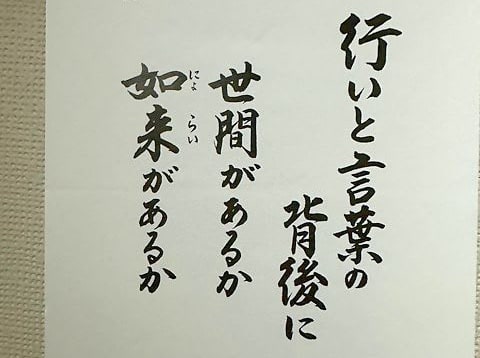 行いと言葉の
背後に
世間があるか
如来があるか
にょらい